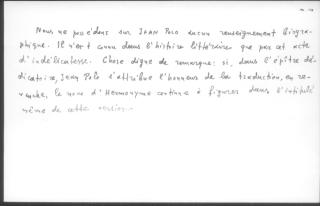 Nous ne possédons sur JEAN Polo aucun renseignement biogra-
phique. Il n'est connu dans l'histoire littéraire que par cet acte
d'indélicatesse. Chose digne de remarque: si, dans l'épître dé-
dicatoire, Jean Polo s'attribue l'honneur de la traduction, en re-
vanche, le nom d'Hermonyme continue à figurer dans l'intitulé
même de cette version.